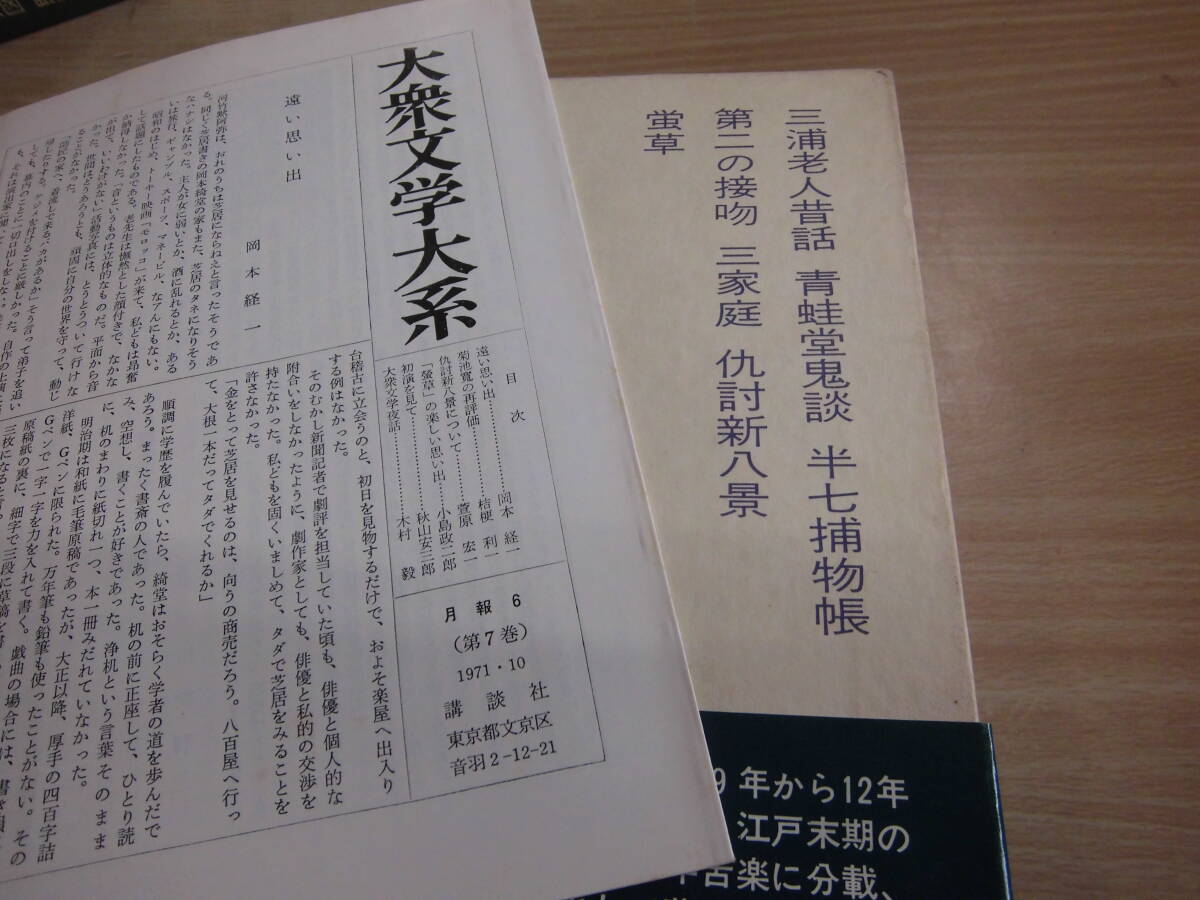 大衆文学大系
遠い思い出
岡本経一
河竹黙阿弥は、おれのうちは芝居にならねえと言ったそうであ
る。同じく芝居書きの岡本綺堂の家もまた、芝居のタネになりそう
なハナシはなかった。主人が女に弱いとか、酒に乱れるとか、ある
いは旅行、ギャンブル、スポーツ、マネービル、なアんにもない。
昭和のはじめ、トーキー映画「モロッコ」が来て、私どもは昂奮
して話題にしたものである。老先生は憮然とした顔付きで、なかな
か納得しなかった。「音というものは立体的なものだ。平面から音
が出て、いいわけがない」活動写真には、とうとうついて行けな
かった。世間はどうあろうとも、頑固に自分の世界を守って、動じ
ることがなかった。
目次
遠い思い出…………岡本経一
菊池寛の再評価…………桔梗利一
仇討新八景について…………萱原宏一
「螢草」の楽しい思い出……小島政二郎
初演を見て…………秋山安三郎
大衆文学夜話…………木村毅
月報6
(第7巻)
1971・10
講談社
東京都文京区
音羽2-12-21
台稽古に立会うのと、初日を見物するだけで、およそ楽屋へ出入り
する例はなかった。
そのむかし新聞記者で劇評を担当していた頃も、俳優と個人的な
附合いをしなかったように、劇作家としても、俳優と私的の交渉を
持たなかった。私どもを固くいましめて、タダで芝居をみることを
許さなかった。
「金をとって芝居を見せるのは、向うの商売だろう。八百屋へ行っ
て、大根一本だってタダでくれるか」
順調に学歴を履んでいたら、綺堂はおそらく学者の道を歩んだで
あろう。まったく書斎の人であった。机の前に正座して、ひとり読
み、空想し、書くことが好きであった。浄机という言葉そのまま
に、机のまわりに紙切れ一つ、本一冊みだれていなかった。
明治期は和紙に毛筆原稿であったが、大正以降、厚手の四百字詰
洋紙、Gペンに限られた。万年筆も鉛筆も使ったことがない。その
Gペンで一字一字を力を入れて書く。戯曲の場合には、
原稿紙の裏に、細字で三段に草稿を
三浦老人昔話 青蛙堂鬼談 半七捕物帳
第二の接吻 三家庭 仇討新八景
蛍草
9年から12年
江戸末期の
苦楽に分載、